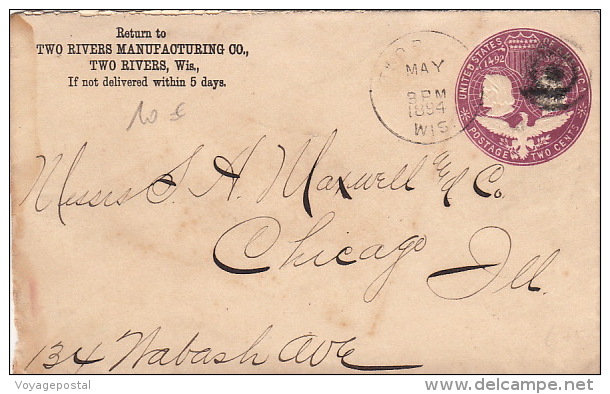 Return to
TWO RIVERS MANUFACTURING CO.,
TWO RIVERS, Wis.,
If not delivered within 5 days.
MAY
9 PM
1894
WIS
UNITED STATES OF AMERICA
1492
POSTAGE TWO CENTS
10 €
Messrs S. A. Maxwell & Co.
Chicago Ill
134 Wabash Ave
Voyagepostal
delcampe.net